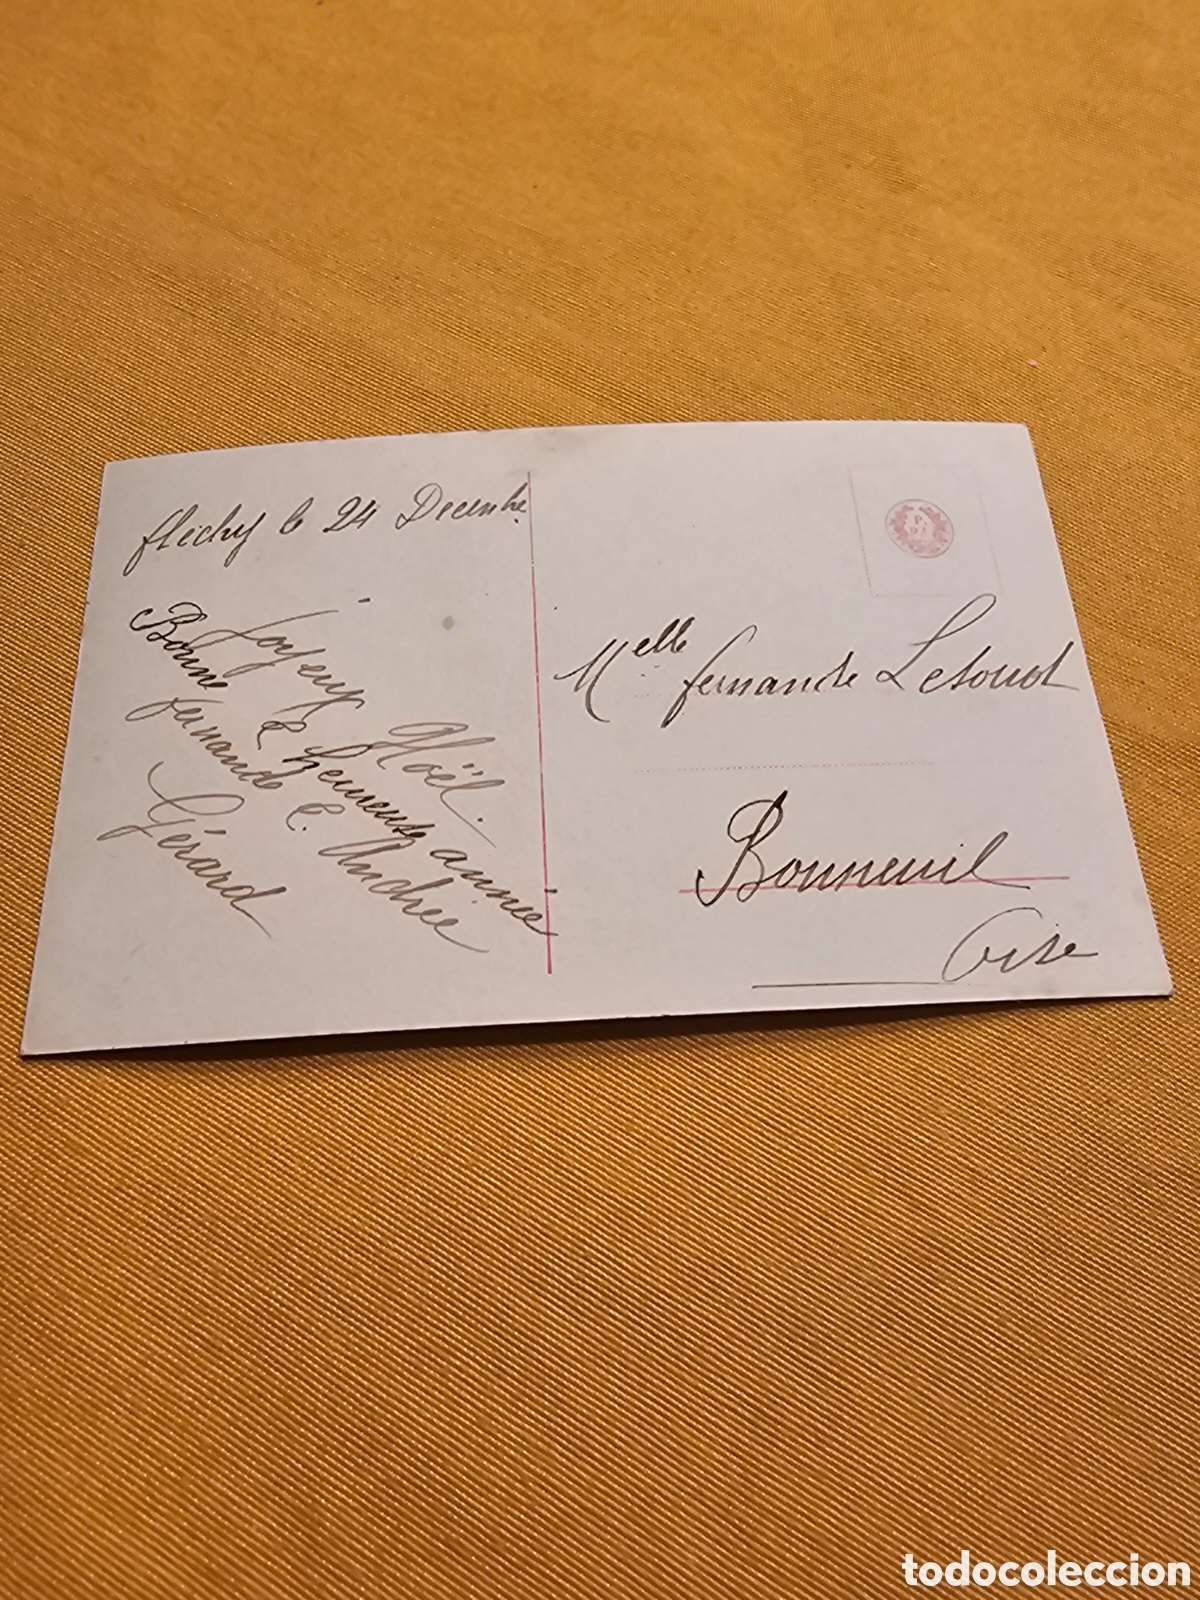 fléchy le 24 Decembre
Joyeux Noël.
Bonne & heureuse année
fernande E. Andrée
Gérard
Melle fernande Letourt
Bonneuil
Oise
todocoleccion